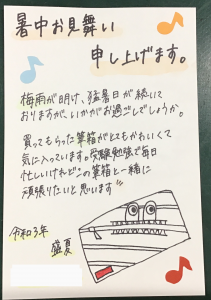 暑中お見舞い
申し上げます。
梅雨が明け、猛暑日が続いて
おりますが、いかがお過ごしでしょうか。
買ってもらった筆箱がとてもかわいくて
気に入っています。受験勉強で毎日
忙しいけれど、この筆箱と一緒に
頑張りたいと思います!!
令和3年
盛夏